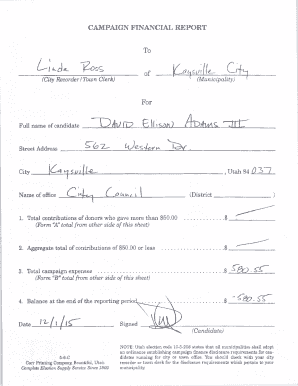 CAMPAIGN FINANCIAL REPORT
To
Linda Ross of Kaysville City
(City Recorder/Town Clerk) (Municipality)
For
Full name of candidate David Ellison Adams III
Street Address 562 Western Dr.
City Kaysville, Utah 84 037
Name of office City Council (District )
1. Total contributions of donors who gave more than $50.00 $
(Form "A" total from other side of this sheet)
2. Aggregate total of contributions of $50.00 or less $
3. Total campaign expenses $ 580.55
(Form "B" total from other side of this sheet)
4. Balance at the end of the reporting period $ -580.55
Date 12/1/15 Signed
(Candidate)
Carr Printing Company Bountiful, Utah
Complete Election Supply Service Since
NOTE: Utah election code states that all municipalities shall adopt
an ordinance establishing campaign finance disclosure requirements for can-
didates running for city or town office. You should check with your city
recorder or town clerk for the disclosure requirements which pertain to your
municipality.